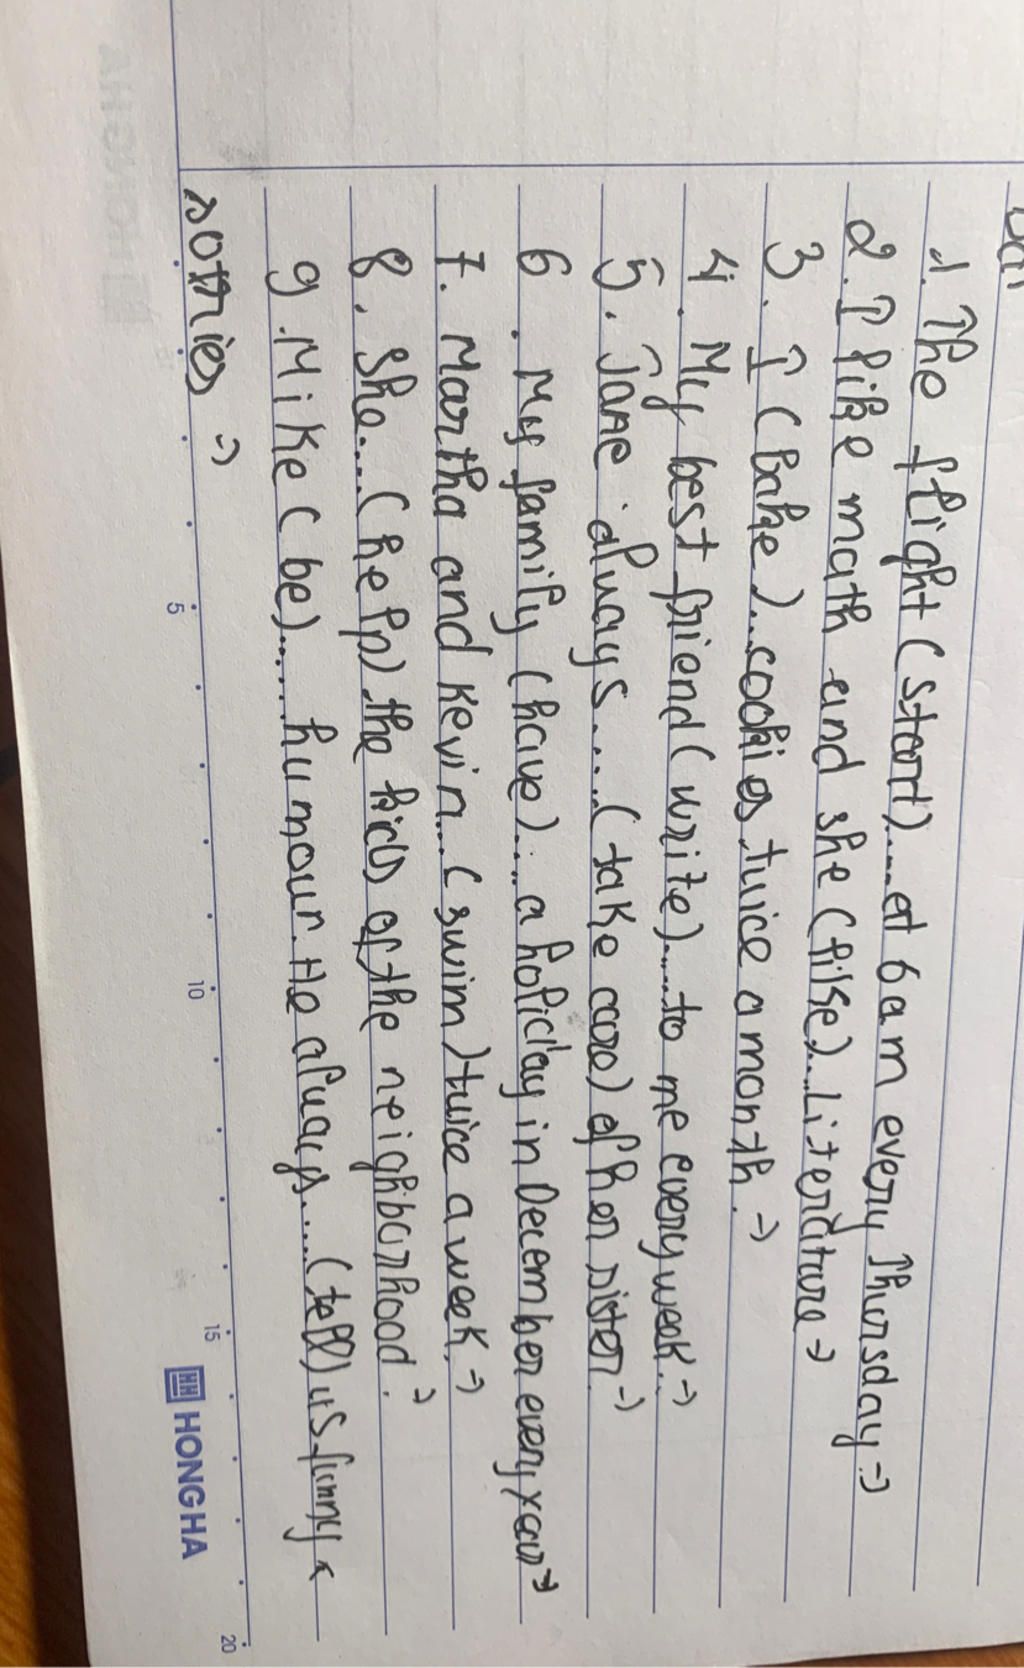 1. The flight (start)....at 6am every Thursday =>
2. I like math and she (like)...Literature =>
3. I (bake)...cookies twice a month. =>
4. My best friend (write).....to me every week. =>
5. Jane always......(take care) of her sister. =>
6. My family (have).... a holiday in December every year =>
7. Martha and Kevin....(swim) twice a week. =>
8. She....(help) the kids of the neighborhood. =>
9. Mike (be)...... humour. He always.....(tell) us funny
sotries =>
5 10 15 20
HH HONG HA